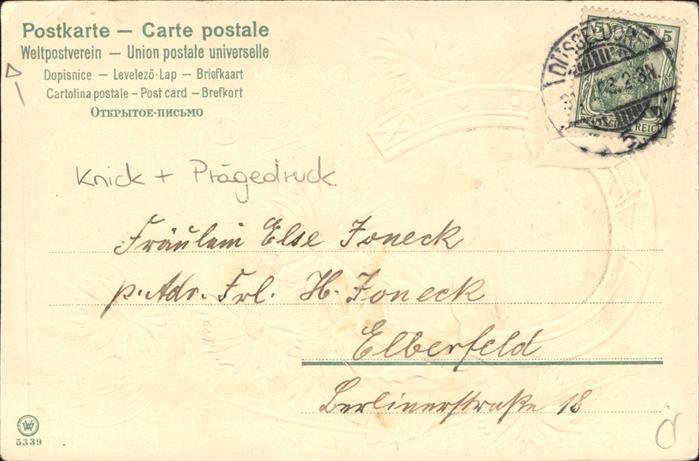 Postkarte – Carte postale
Weltpostverein – Union postale universelle
Dopisnice – Levelező-Lap – Briefkaart
Cartolina postale - Post card – Brefkort
Открытое-письмо
DÜSSELDORF
5 5
2-3N
REICH
Knick + Prägedruck
Fräulein Else Joneck
p. Adr. Frl. H. Joneck
Elberfeld
Berlinerstraße 18
5339